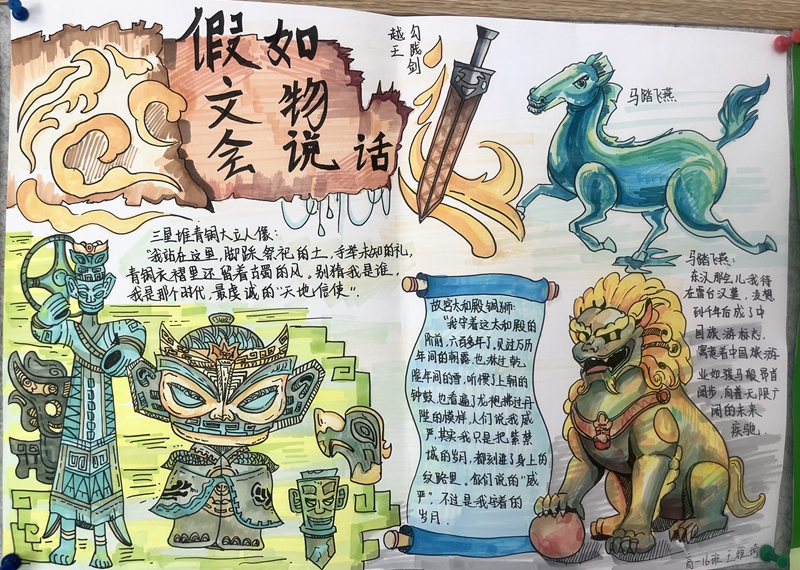 假如
文物
会说话
越王
勾践剑
马踏飞燕
三星堆青铜大立人像:
“我站在这里,脚踩祭祀的土,手举未知的礼,
青铜衣褶里还留着古蜀的风。别猜我是谁,
我是那个时代,最虔诚的“天地信使”.
故宫太和殿铜狮:
“我守着这太和殿的
阶前,六百多年了,见过万历
年间的朝霞,也淋过乾
隆年间的雪,听惯了上朝的
钟鼓,也看遍了龙袍拂过丹
陛的模样,人们说我威
严,其实我只是把紫禁
城的岁月,都刻进了身上的
纹路里.你们说的“威
严”.不过是我守着的
岁月.
马踏飞燕:
东汉那会儿我待
在雷台汉墓,没想
到千年后成了中
国旅游标志,
寓意着中国旅游
业如骏马般昂首
阔步,向着无限广
阔的未来
疾驰.
高一16班 王雅